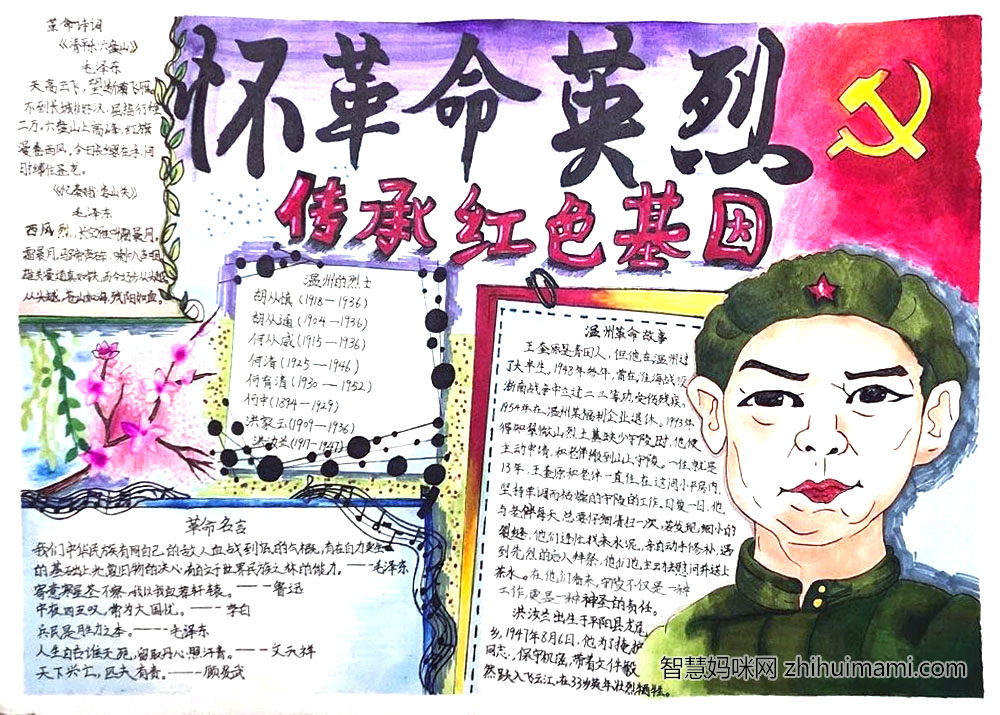 怀革命英烈
传承红色基因
革命诗词
《清平乐·六盘山》
毛泽东
天高云飞，望断南飞雁
不到长城非好汉，屈指行程
二万，六盘山上高峰，红旗
漫卷西风，今日长缨在手，何
时缚住苍龙。
《忆秦娥·娄山关》
毛泽东
西风烈，长空雁叫霜晨月，
霜晨月，马蹄声碎，喇叭声咽，
雄关漫道真如铁，而今迈步从头越
从头越，苍山如海，残阳如血。
温州的烈士
胡从慎（1918—1936）
胡从通（1904—1936）
何从威（1915—1936）
何清（1925—1946）
何有清（1930—1952）
何中（1894—1929）
洪家云（1909—1936）
洪汝兰（1917—1947）
革命名言
我们中华民族有同自己的敌人血战到底的气概，有在自力更生
的基础上光复旧物的决心，有自立于世界民族之林的能力。——毛泽东
寄意寒星荃不察，我以我血荐轩辕。——鲁迅
中夜四五叹，常为大国忧。——李白
兵民是胜利之本。——毛泽东
人生自古谁无死，留取丹心照汗青。——文天祥
天下兴亡，匹夫有责。——顾炎武
温州革命故事
王奎原是青田人，但他在温州过
了大半生，1948年参军，曾在淮海战役
浙南战争中立过二三等功，受伤残疾。
1954年在温州某福利企业退休，1993年
得知翠微山烈士墓缺少守陵员时，他便
主动申请，和老伴搬到山上守陵。一住就是
13年，王奎原和老伴一直住在这间小平房内，
坚持单调而枯燥的守陵的工作。日复一日，他
与老伴每天总要仔细清扫一次，若发现细小的
裂缝，他们连忙找来水泥，亲自动手修补，遇
到先烈的后人拜祭，他们也主动去慰问并送上
茶水。在他们看来，守陵不仅是一种
工作，更是一种神圣的责任。
洪汝兰出生于平阳县
乡，1947年8月6日，他为了掩护
同志，保守机密，带着文件毅
然跃入飞云江，在33岁英年壮烈牺牲。
智慧妈咪网 zhihuimami.com